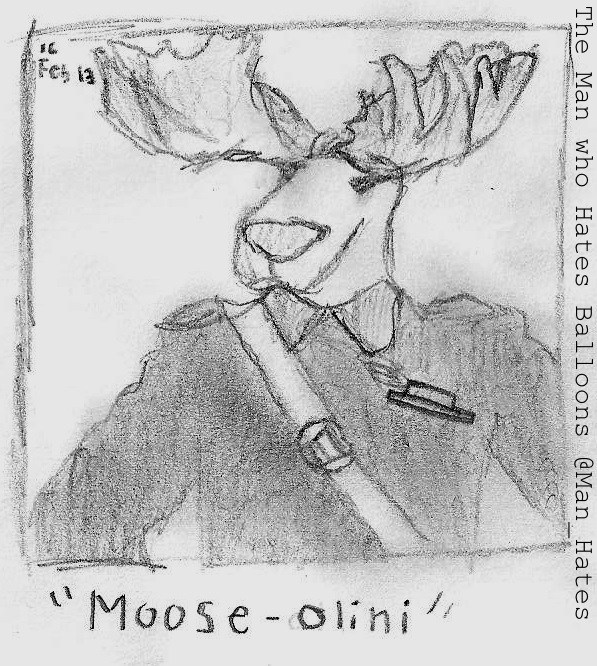 '16
Feb 13
"Moose-olini"
The Man who Hates Balloons @Man_Hates